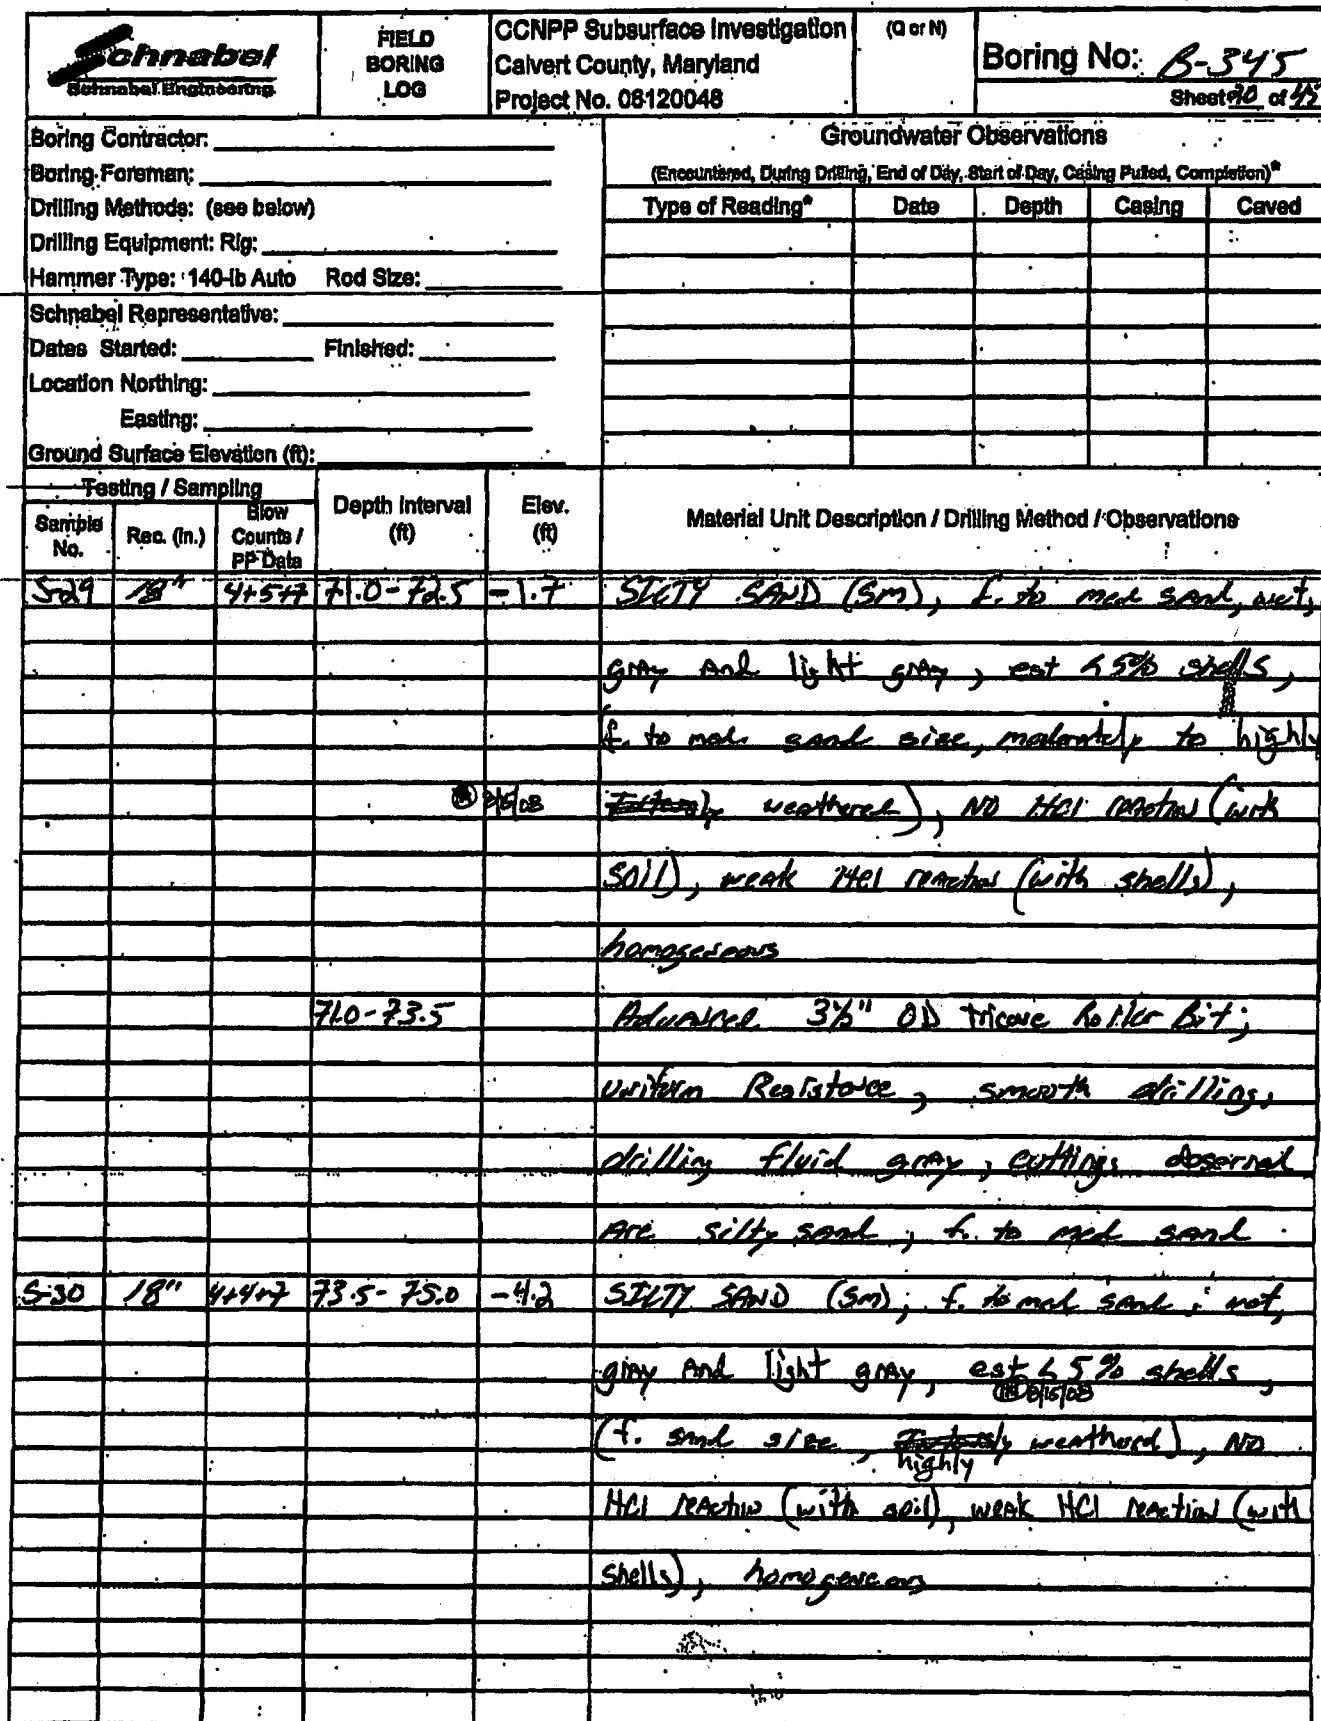 Schnabel
Schnabel Engineering
FIELD
BORING
LOG
CCNPP Subsurface Investigation
Calvert County, Maryland
Project No. 06120048
(Q or N)
Boring No: B-345
Sheet of
Boring Contractor:
Boring Foreman:
Drilling Methods: (see below)
Drilling Equipment: Rig:
Hammer Type: 140-lb Auto Rod Size:
Schnabel Representative:
Dates Started: Finished:
Location Northing:
Easting:
Ground Surface Elevation (ft):
Groundwater Observations
(Encountered, During Drilling, End of Day, Start of Day, Casing Pulled, Completion)*
Type of Reading* Date Depth Casing Caved
Testing / Sampling
Sample No. Rec. (in.) Blow Counts / PP Data Depth Interval (ft) Elev. (ft) Material Unit Description / Drilling Method / Observations
S-29 18" 4+5+7 71.0-72.5 -1.7 SILTY SAND (SM), f. to med sand, wet,
gray and light gray, est <5% shells,
f. to med. sand size, moderately to highly
weathered), NO HCl reaction (with
soil), weak HCl reaction (with shells),
homogeneous
71.0-73.5 Advanced 3½" OD tricone Roller Bit;
uniform Resistance, smooth drilling,
drilling fluid gray, cuttings observed
are silty sand, f. to med sand
S-30 18" 4+4+7 73.5-75.0 -4.2 SILTY SAND (SM); f. to med sand; wet,
gray and light gray, est <5% shells,
8/15/08
(f. sand size, weathered), NO
highly
HCl reaction (with soil), weak HCl reaction (with
shells), homogeneous